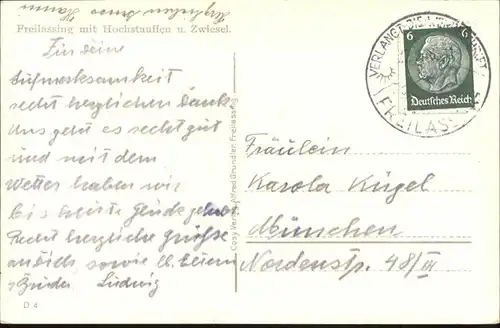 Freilassing mit Hochstauffen u. Zwiesel.
Für deine
Aufmerksamkeit
recht herzlichen Dank
Uns geht es recht gut
und mit dem
Wetter haben wir
bis heute Glück gehabt
Recht herzliche Grüße
an dich sowie lb. Eltern
Bruder Ludwig
D 4
Cosy Verlag Alfred Gründler, Freilassing
VERLANGT DIE
FREILASS
6 6
Deutsches Reich
Fräulein
Karola Kügel
München
Nordenstr. 48/III